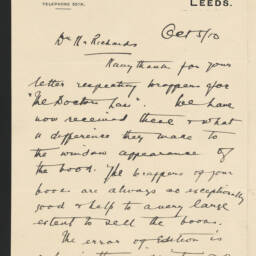 TELEPHONE
LEEDS.
Oct 5/10
Dr Mr Richards
Many thanks for your
letter respecting wrappers for
"The Doctor's Lass". We have
now received these & what
a difference they made to
the window appearance of
the book. The wrappers of your
books are always so exceptionally
good & help to a very large
extent to sell the books.
The error of Edition is